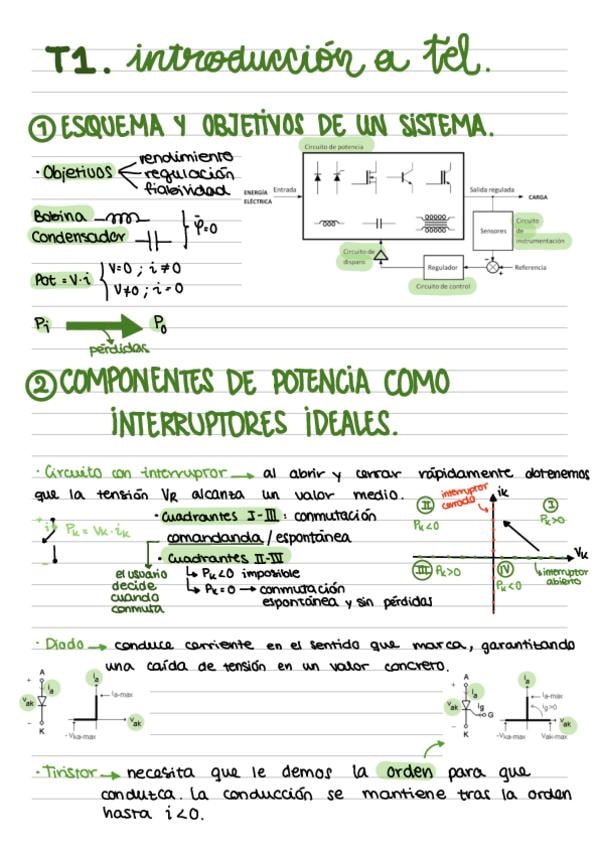 T1. introducción a tel.
① ESQUEMA Y OBJETIVOS DE UN SISTEMA.
· Objetivos
rendimiento
regulación
fiabilidad
Bobina
Condensador
P̄=0
Pot = V·i
V=0 ; i≠0
V≠0 ; i=0
Pi
Po
pérdidas
Circuito de potencia
ENERGÍA
ELÉCTRICA
Entrada
Salida regulada
CARGA
Sensores
Circuito
de
instrumentación
Circuito de
disparo
Regulador
Referencia
Circuito de control
② COMPONENTES DE POTENCIA COMO
INTERRUPTORES IDEALES.
· Circuito con interruptor → al abrir y cerrar rápidamente obtenemos
que la tensión VR alcanza un valor medio.
+
-
PK = VK · iK
· Cuadrantes I-III: conmutación
comandanda / espontánea
· Cuadrantes II-IV
↳ PK<0 imposible
↳ PK=0 → conmutación
espontánea y sin pérdidas
el usuario
decide
cuando
conmuta
interruptor
cerrado
iK
II
PK<0
I
PK>0
VK
III PK>0
IV
PK<0
interruptor
abierto
· Diodo → conduce corriente en el sentido que marca, garantizando
una caída de tensión en un valor concreto.
A
+
ia
vak
-
K
ia
ia-max
vak
-Vka-max
A
+
ia
vak
ig
G
-
K
ia
ia-max
ig>0
vak
-Vka-max
Vak-max
· Tiristor → necesita que le demos la orden para que
conduzca. La conducción se mantiene tras la orden
hasta i<0.